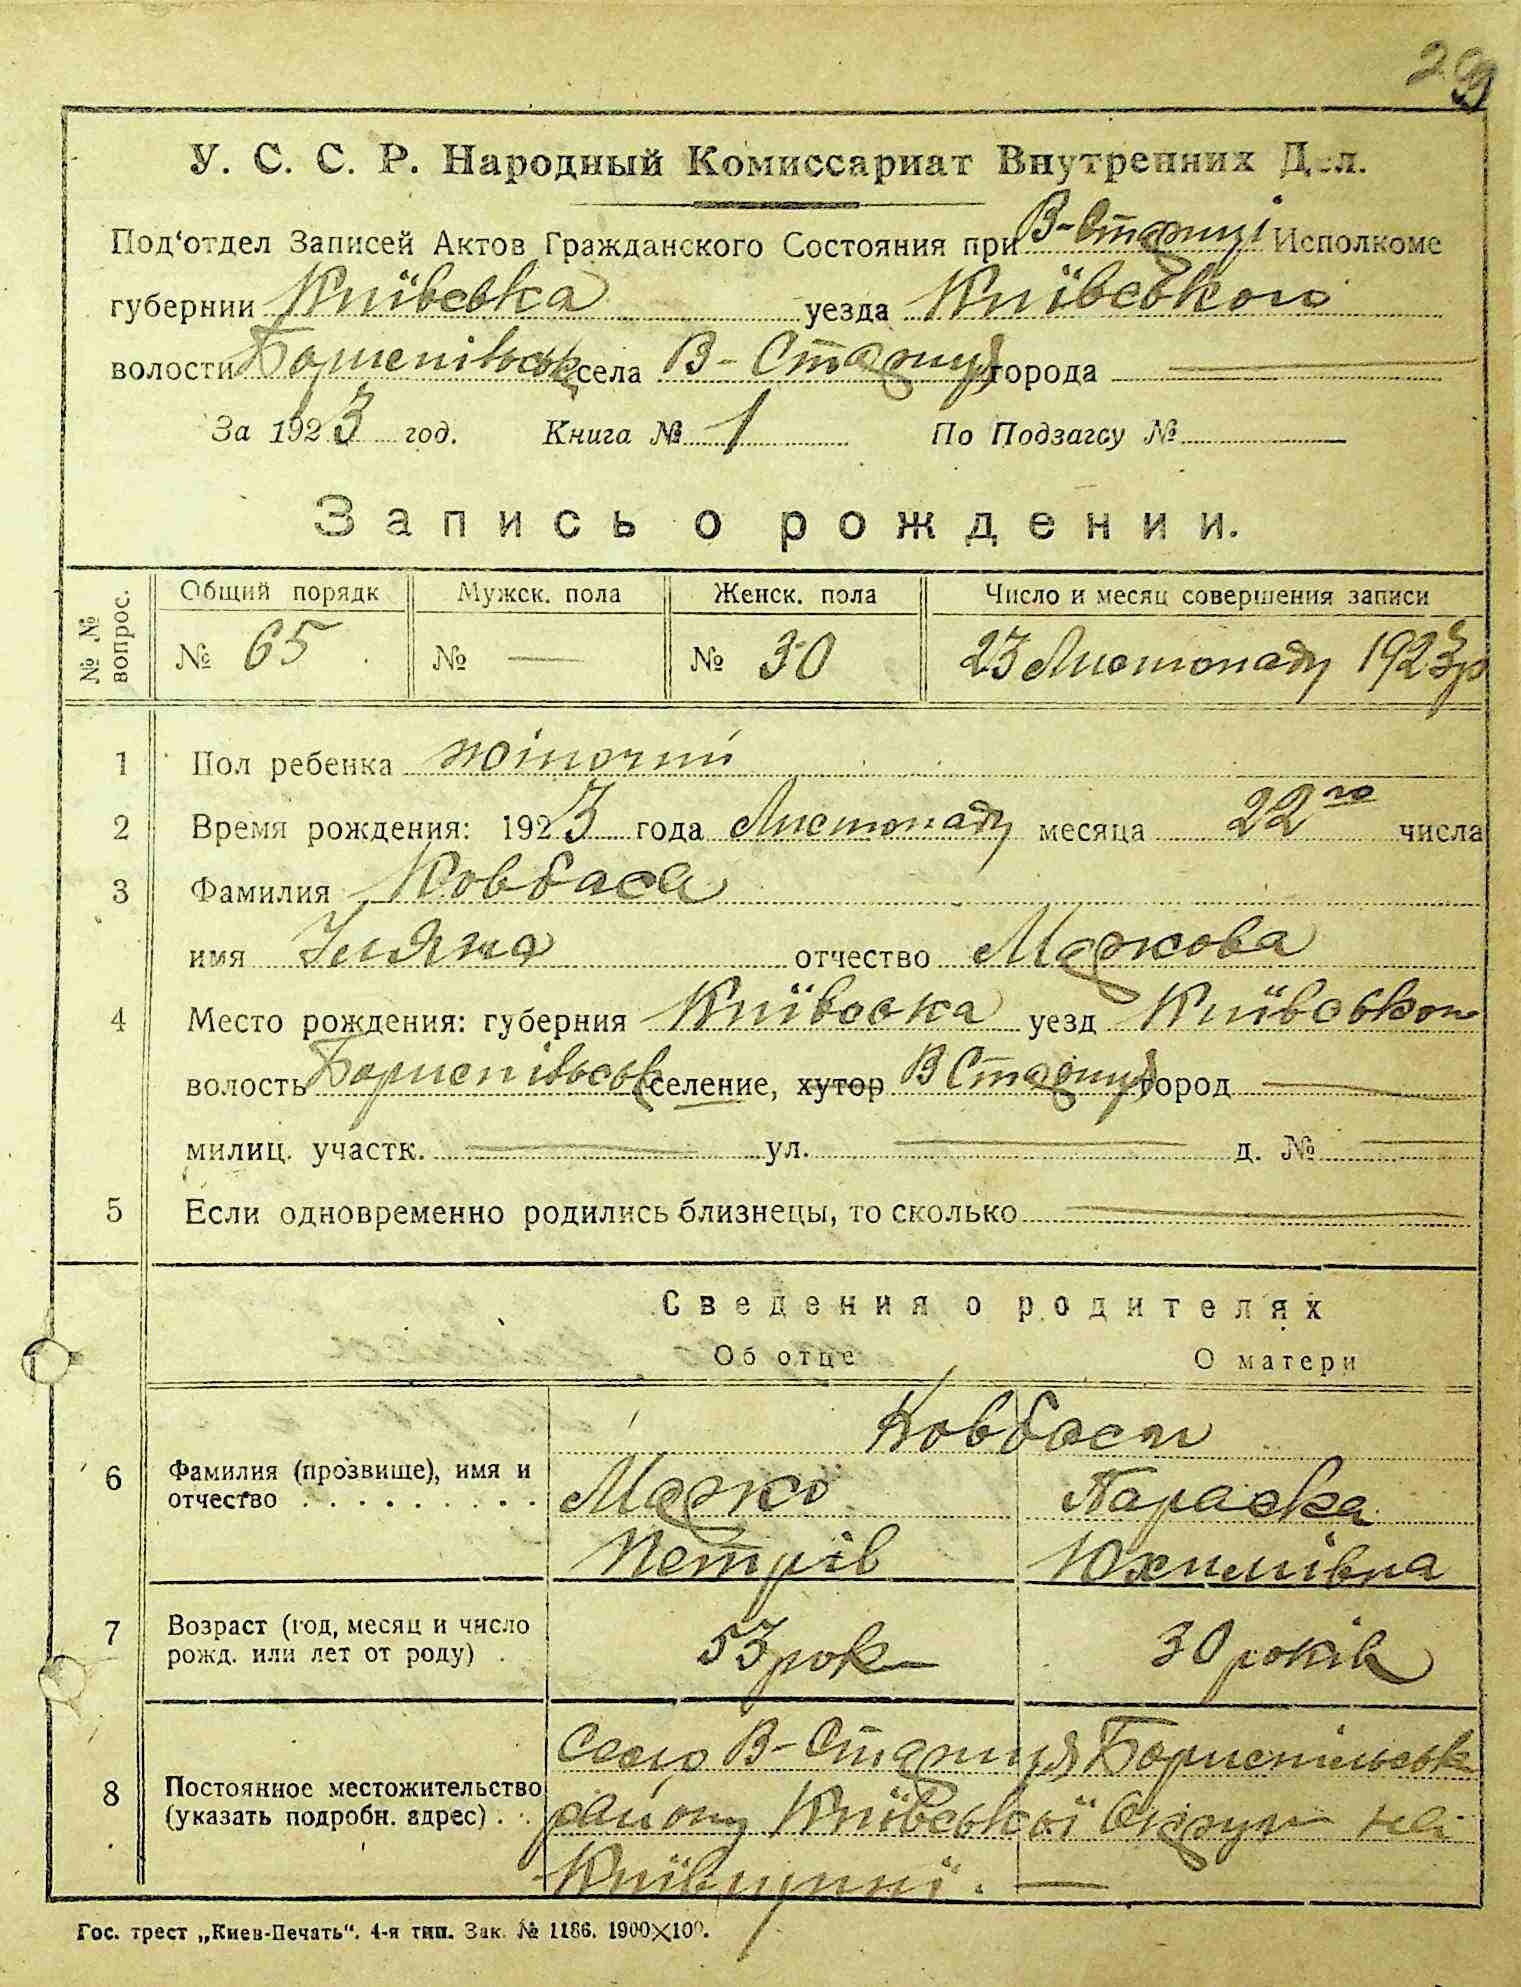 299
У. С. С. Р. Народный Комиссариат Внутренних Дел.
Под‘отдел Записей Актов Гражданского Состояния при В-Стариці Исполкоме
губернии Київська уезда Київського
волости Бориспільськ села В-Стариця города
За 1923 год. Книга № 1 По Подзагсу №
Запись о рождении.
№ № вопрос. Общий порядк Мужск. пола Женск. пола Число и месяц совершения записи
№ 65 № — № 30 23 Листопаду 1923 р
1 Пол ребенка жіночий
2 Время рождения: 1923 года Листопаду месяца 22го числа
3 Фамилия Ковбаса
имя Уляна отчество Маркова
4 Место рождения: губерния Київська уезд Київського
волость Бориспільськ селение, хутор В Стариця город —
милиц. участк. — ул. — д. № —
5 Если одновременно родились близнецы, то сколько —
Сведения о родителях
Об отце О матери
Ковбаси
6 Фамилия (прозвище), имя и отчество Марко Параска
Петрів Юхимівна
7 Возраст (год, месяц и число рожд. или лет от роду) 53 рок 30 років
8 Постоянное местожительство (указать подробн. адрес) Село В-Стариця Бориспільськ
району Київської Округи на
Київщині. —
Гос. трест „Киев-Печать“. 4-я тип. Зак. № 1186. 1900×100.